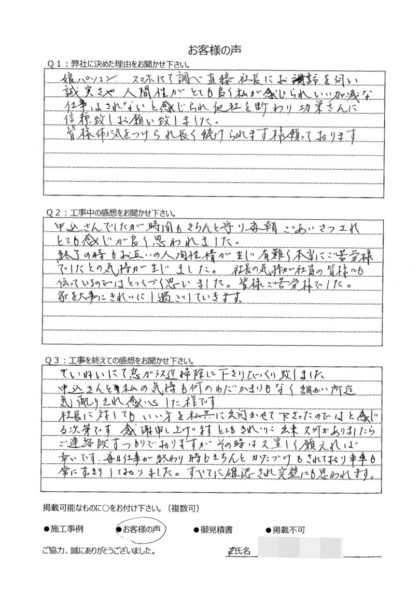 お客様の声
Q1：弊社に決めた理由をお聞かせ下さい。
娘パソコン スマホにて調べ直接社長にお 話を伺い
誠実さや人間性がとても良く私が感じられいい加減な
仕事はされないと感じられ他社を断わり功栄さんに
信頼致しお願い致しました。
皆様体に気をつけられ長く続けられます様願っております
Q2：工事中の感想をお聞かせ下さい。
申込さんでしたが時間もきちんと守り毎朝ごあいさつされ
とても感じが良く思われました。
終了の時もお互いの人間性積がまじ有難く本当にご苦労様
でしたとの気持がまじました。社長の気持が社員の皆様にも
伝っているのではとつくづく思いました。皆様ご苦労様でした。
家を大事にきれいに過ごしていきます。
Q3：工事を終えての感想をお聞かせ下さい。
ていねいにて窓ガラス迄掃除に下さりびっくり致しました
申込さんと私の気持も何のわだかまりもなく細かい所迄
気配りされ感心した程です。
社長に対してもいい方を私共に差向かせて下さったのではと感じ
る次第です 感謝申し上げますと
ご連絡致すつもりでおりますがその時は又宜しく願えれば
幸いです。毎日仕事が終わり時もきちんとかたづけもされており車
常に おりました。すべてに確認され完璧にも思われます。
掲載可能なものに○をお付け下さい。（複数可）
●施工事例 ●お客様の声 ●御見積書 ●掲載不可
ご協力、誠にありがとうございました。 氏名